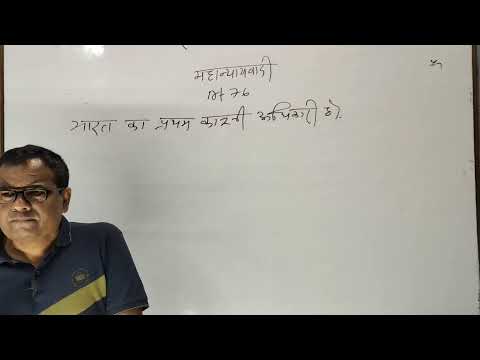 महान्यायवादी
Art 76
भारत का प्रथम कानूनी अधिकारी है।